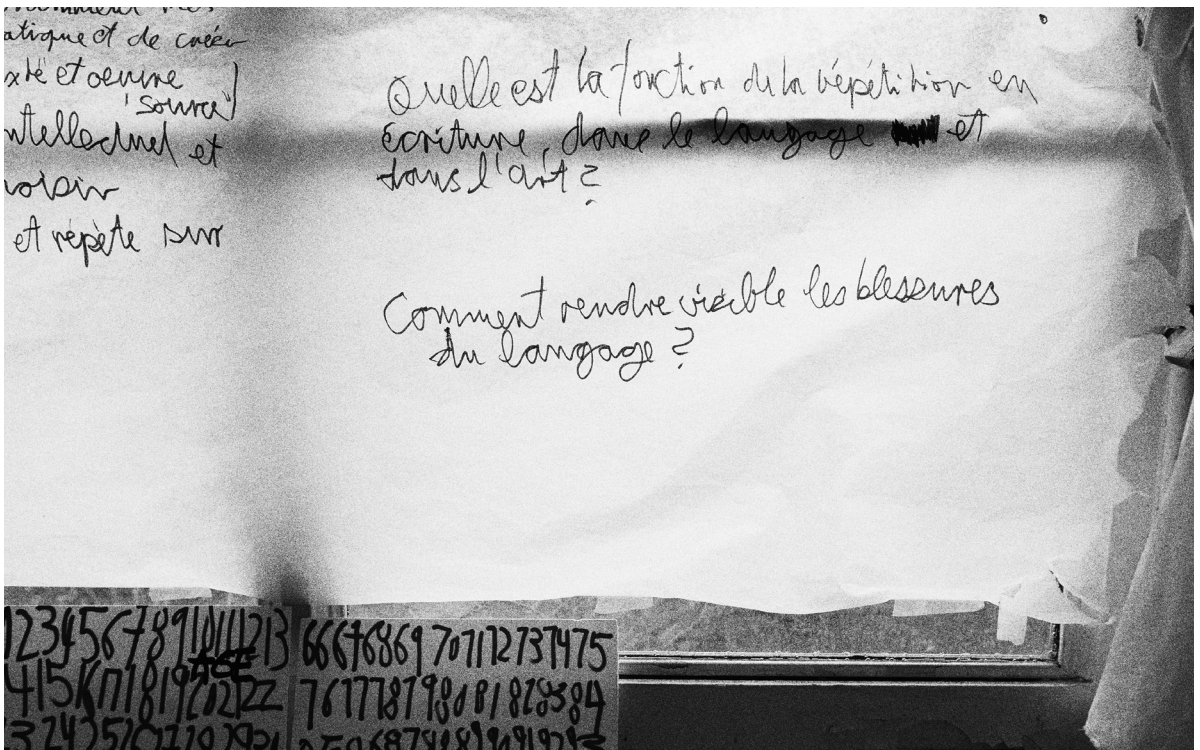 atique et de créer
xte et oeuvre
'source')
ntellectuel et
hoisir
et répète sur
Quelle est la fonction de la répétition en
écriture, dans le langage et
dans l'art ?
Comment rendre visible les blessures
du langage ?
12345678910111213
66676869707172737475
76777879808182838 4